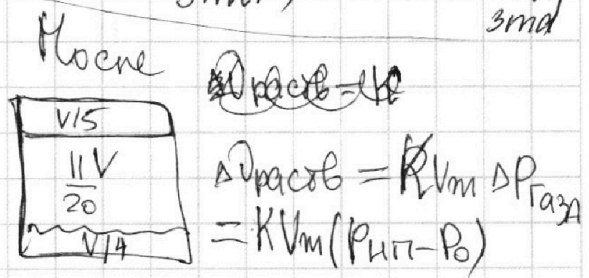 3md
После
V/5
11V
20
V/4
Δϑраств = KVm ΔPгаза
= KVm(Pнп–P₀)